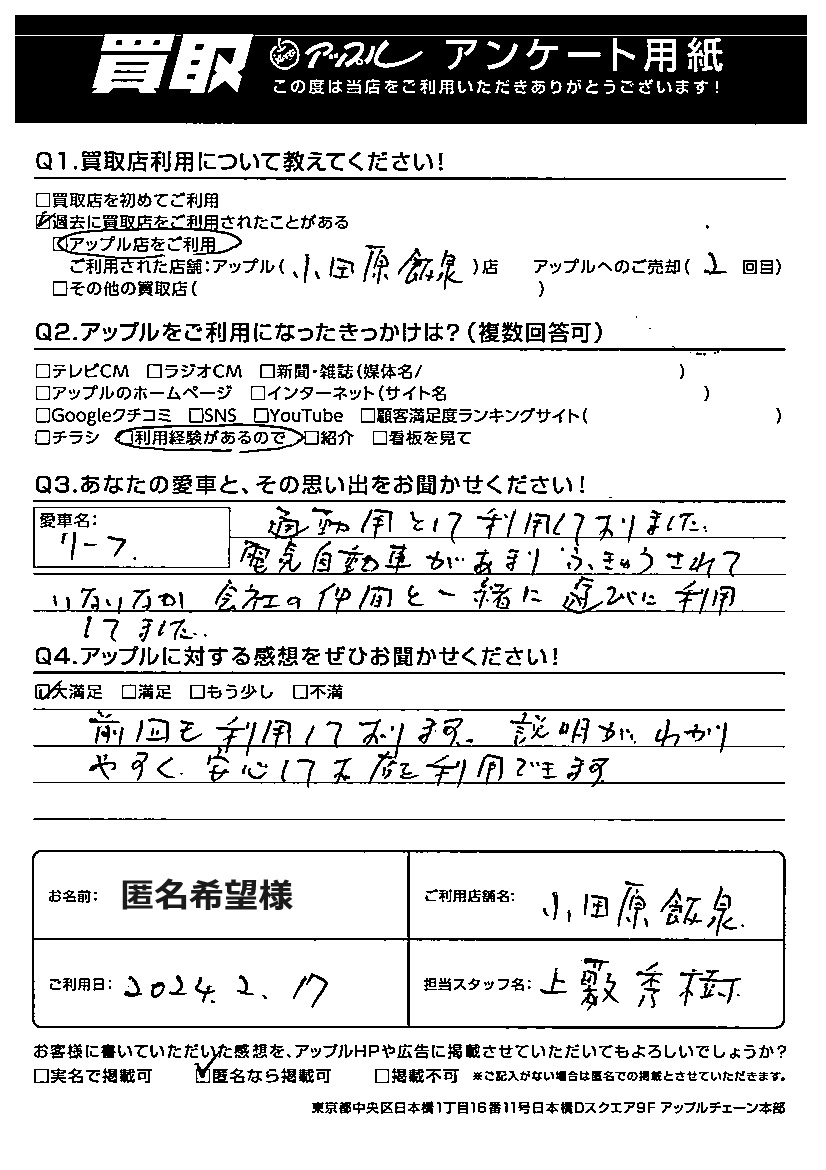 買取 アップル アンケート用紙
この度は当店をご利用いただきありがとうございます!
Q1.買取店利用について教えてください!
□買取店を初めてご利用
☑過去に買取店をご利用されたことがある
□アップル店をご利用
ご利用された店舗:アップル(小田原飯泉)店 アップルへのご売却(2 回目)
□その他の買取店( )
Q2.アップルをご利用になったきっかけは?(複数回答可)
□テレビCM □ラジオCM □新聞・雑誌(媒体名/ )
□アップルのホームページ □インターネット(サイト名 )
□Googleクチコミ □SNS □YouTube □顧客満足度ランキングサイト( )
□チラシ □利用経験があるので □紹介 □看板を見て
Q3.あなたの愛車と、その思い出をお聞かせください!
愛車名:
リーフ.
通勤用として利用しておりました.
電気自動車があまりふきゅうされて
いないなか 会社の仲間と一緒に遊びに利用
してました.
Q4.アップルに対する感想をぜひお聞かせください!
☑大満足 □満足 □もう少し □不満
前回も利用しております。説明が、わかり
やすく、安心してお店を利用できます。
お名前: 匿名希望様
ご利用店舗名: 小田原飯泉.
ご利用日: 2024. 2. 17
担当スタッフ名: 上藪秀樹.
お客様に書いていただいた感想を、アップルHPや広告に掲載させていただいてもよろしいでしょうか?
□実名で掲載可 ☑匿名なら掲載可 □掲載不可 ※ご記入がない場合は匿名での掲載とさせていただきます。
東京都中央区日本橋1丁目16番11号日本橋Dスクエア9F アップルチェーン本部